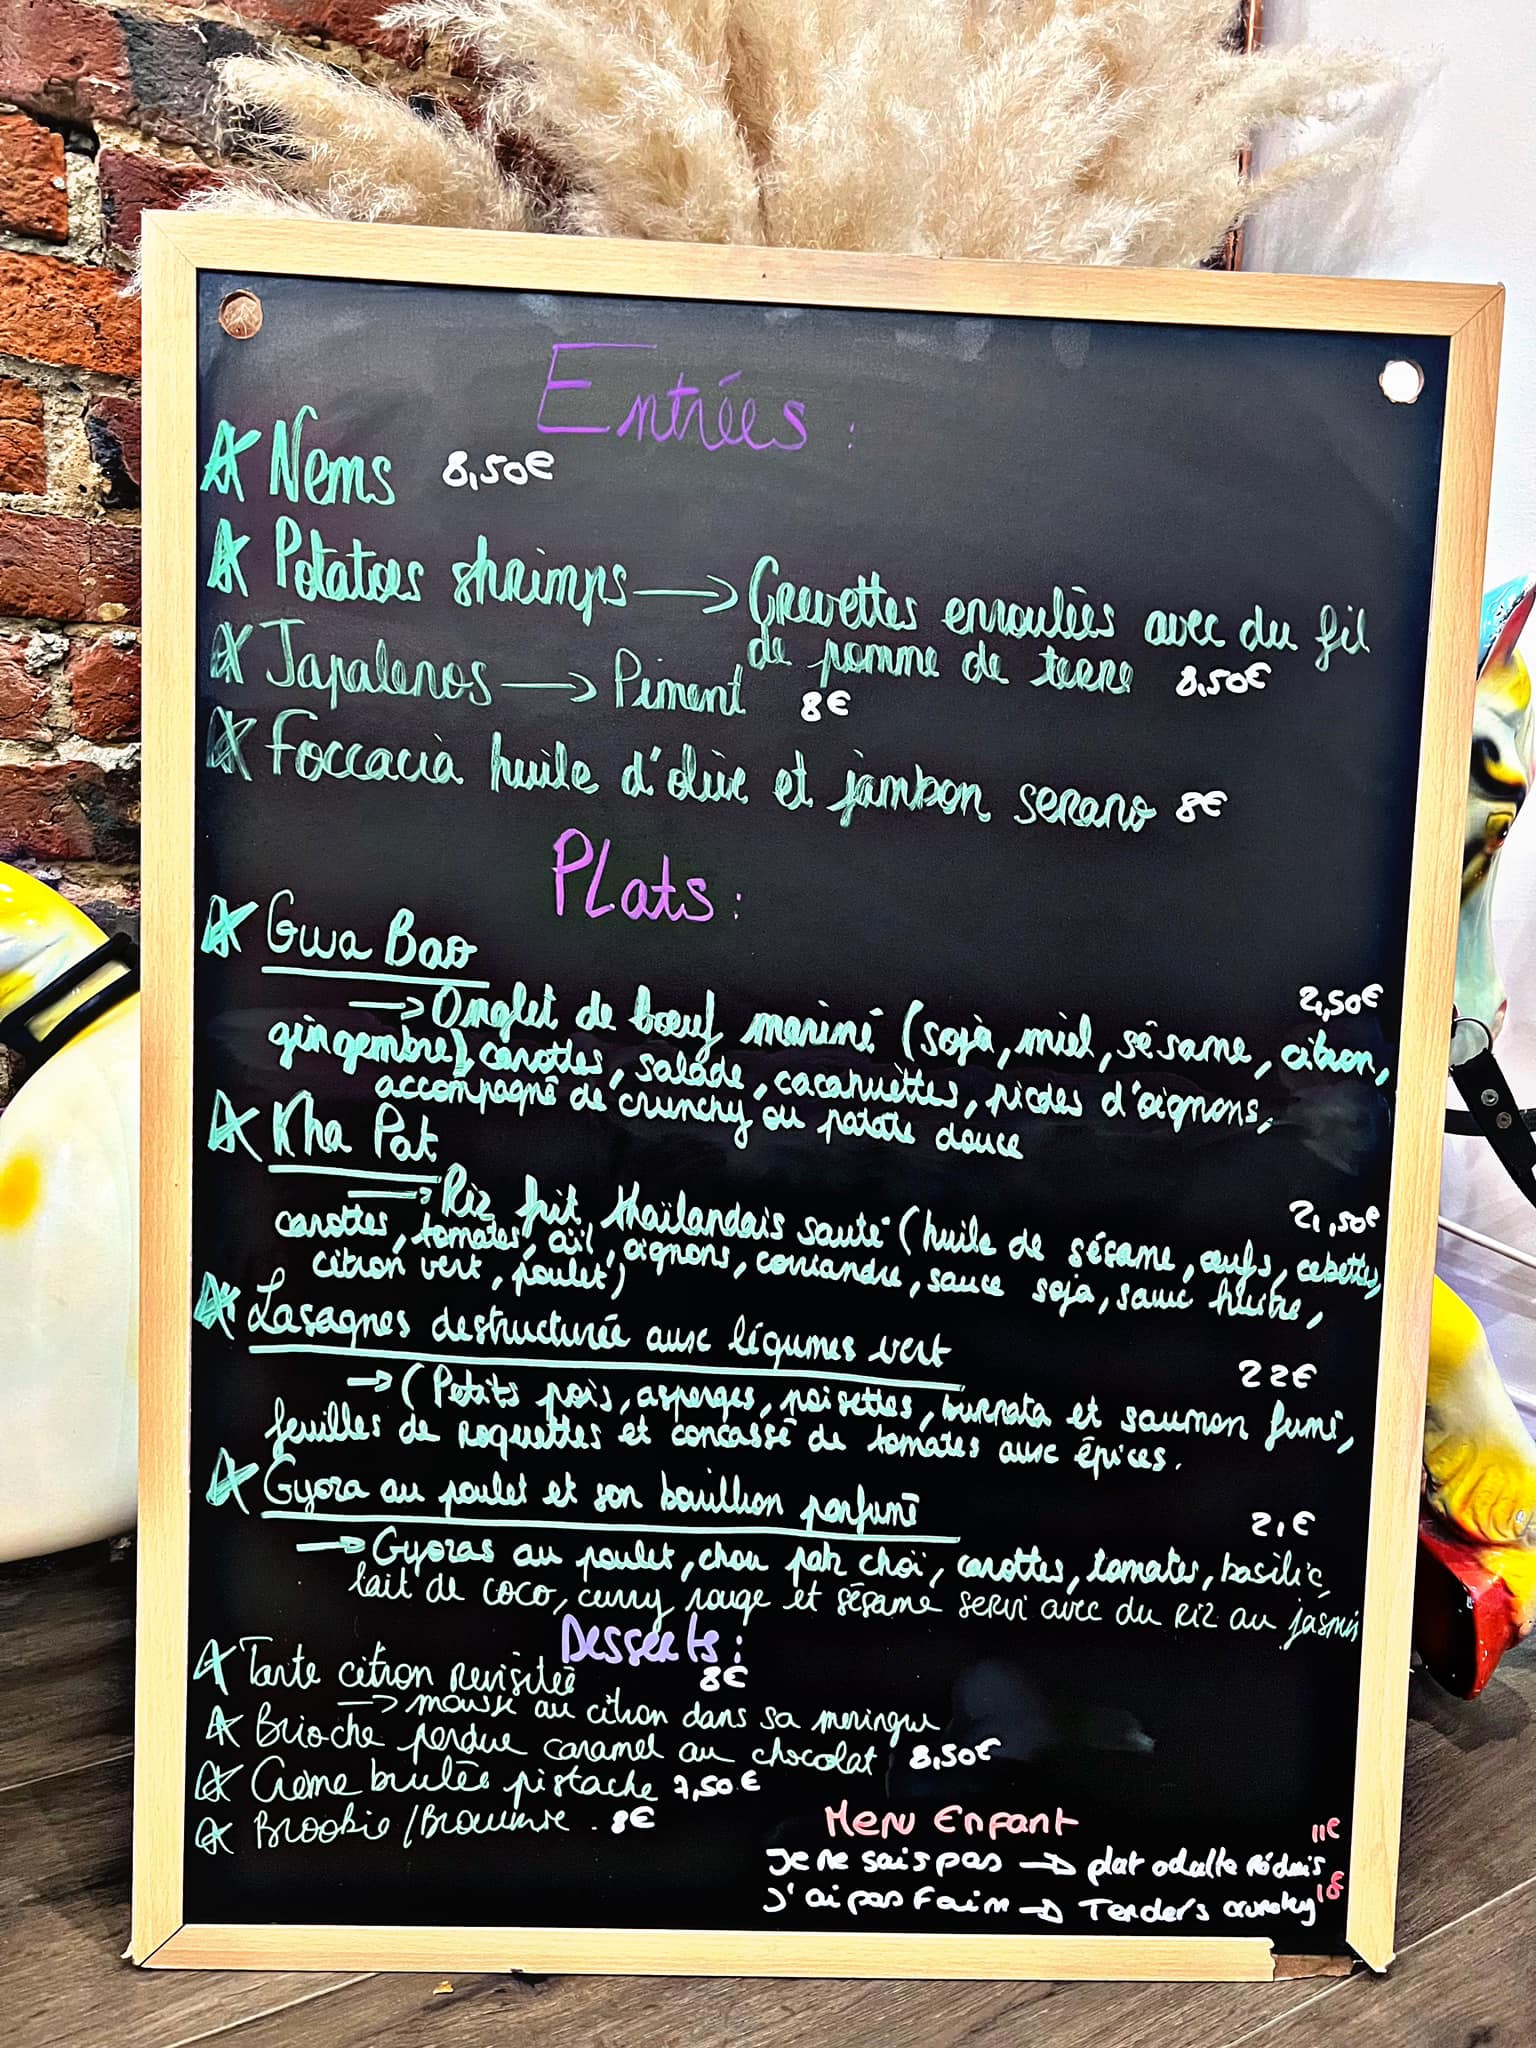 Entrées :
Nems 8,50€
Potatoes shrimps → Crevettes enroulées avec du fil
de pomme de terre 8,50€
Japalenos → Piment 8€
Foccacia huile d'olive et jambon serano 8€
Plats :
Gwa Bao
→ Onglet de bœuf mariné (soja, miel, sésame, citron, 2,50€
gingembre), carottes, salade, cacahuèttes, picles d'oignons,
accompagné de crunchy ou patate douce
Kha Pat
→ Riz frit thaïlandais sauté (huile de sésame, œufs, cebettes, 21,50€
carottes, tomates, ail, oignons, coriandre, sauce soja, sauce huitre,
citron vert, poulet)
Lasagnes destructurée aux légumes vert 22€
→ (Petits pois, asperges, noisettes, burrata et saumon fumé,
feuilles de roquettes et concassé de tomates aux épices.
Gyoza au poulet et son bouillon parfumé 21€
→ Gyozas au poulet, chou pak choï, carottes, tomates, basilic,
lait de coco, curry rouge et sésame servi avec du riz au jasmin
Desserts :
Tarte citron revisitée 8€
→ mousse au citron dans sa meringue
Brioche perdue caramel au chocolat 8,50€
Crème brulée pistache 7,50€
Brookie / Brownie . 8€
Menu Enfant
Je ne sais pas → plat adulte réduis 11€
J'ai pas faim → Tenders crunchy